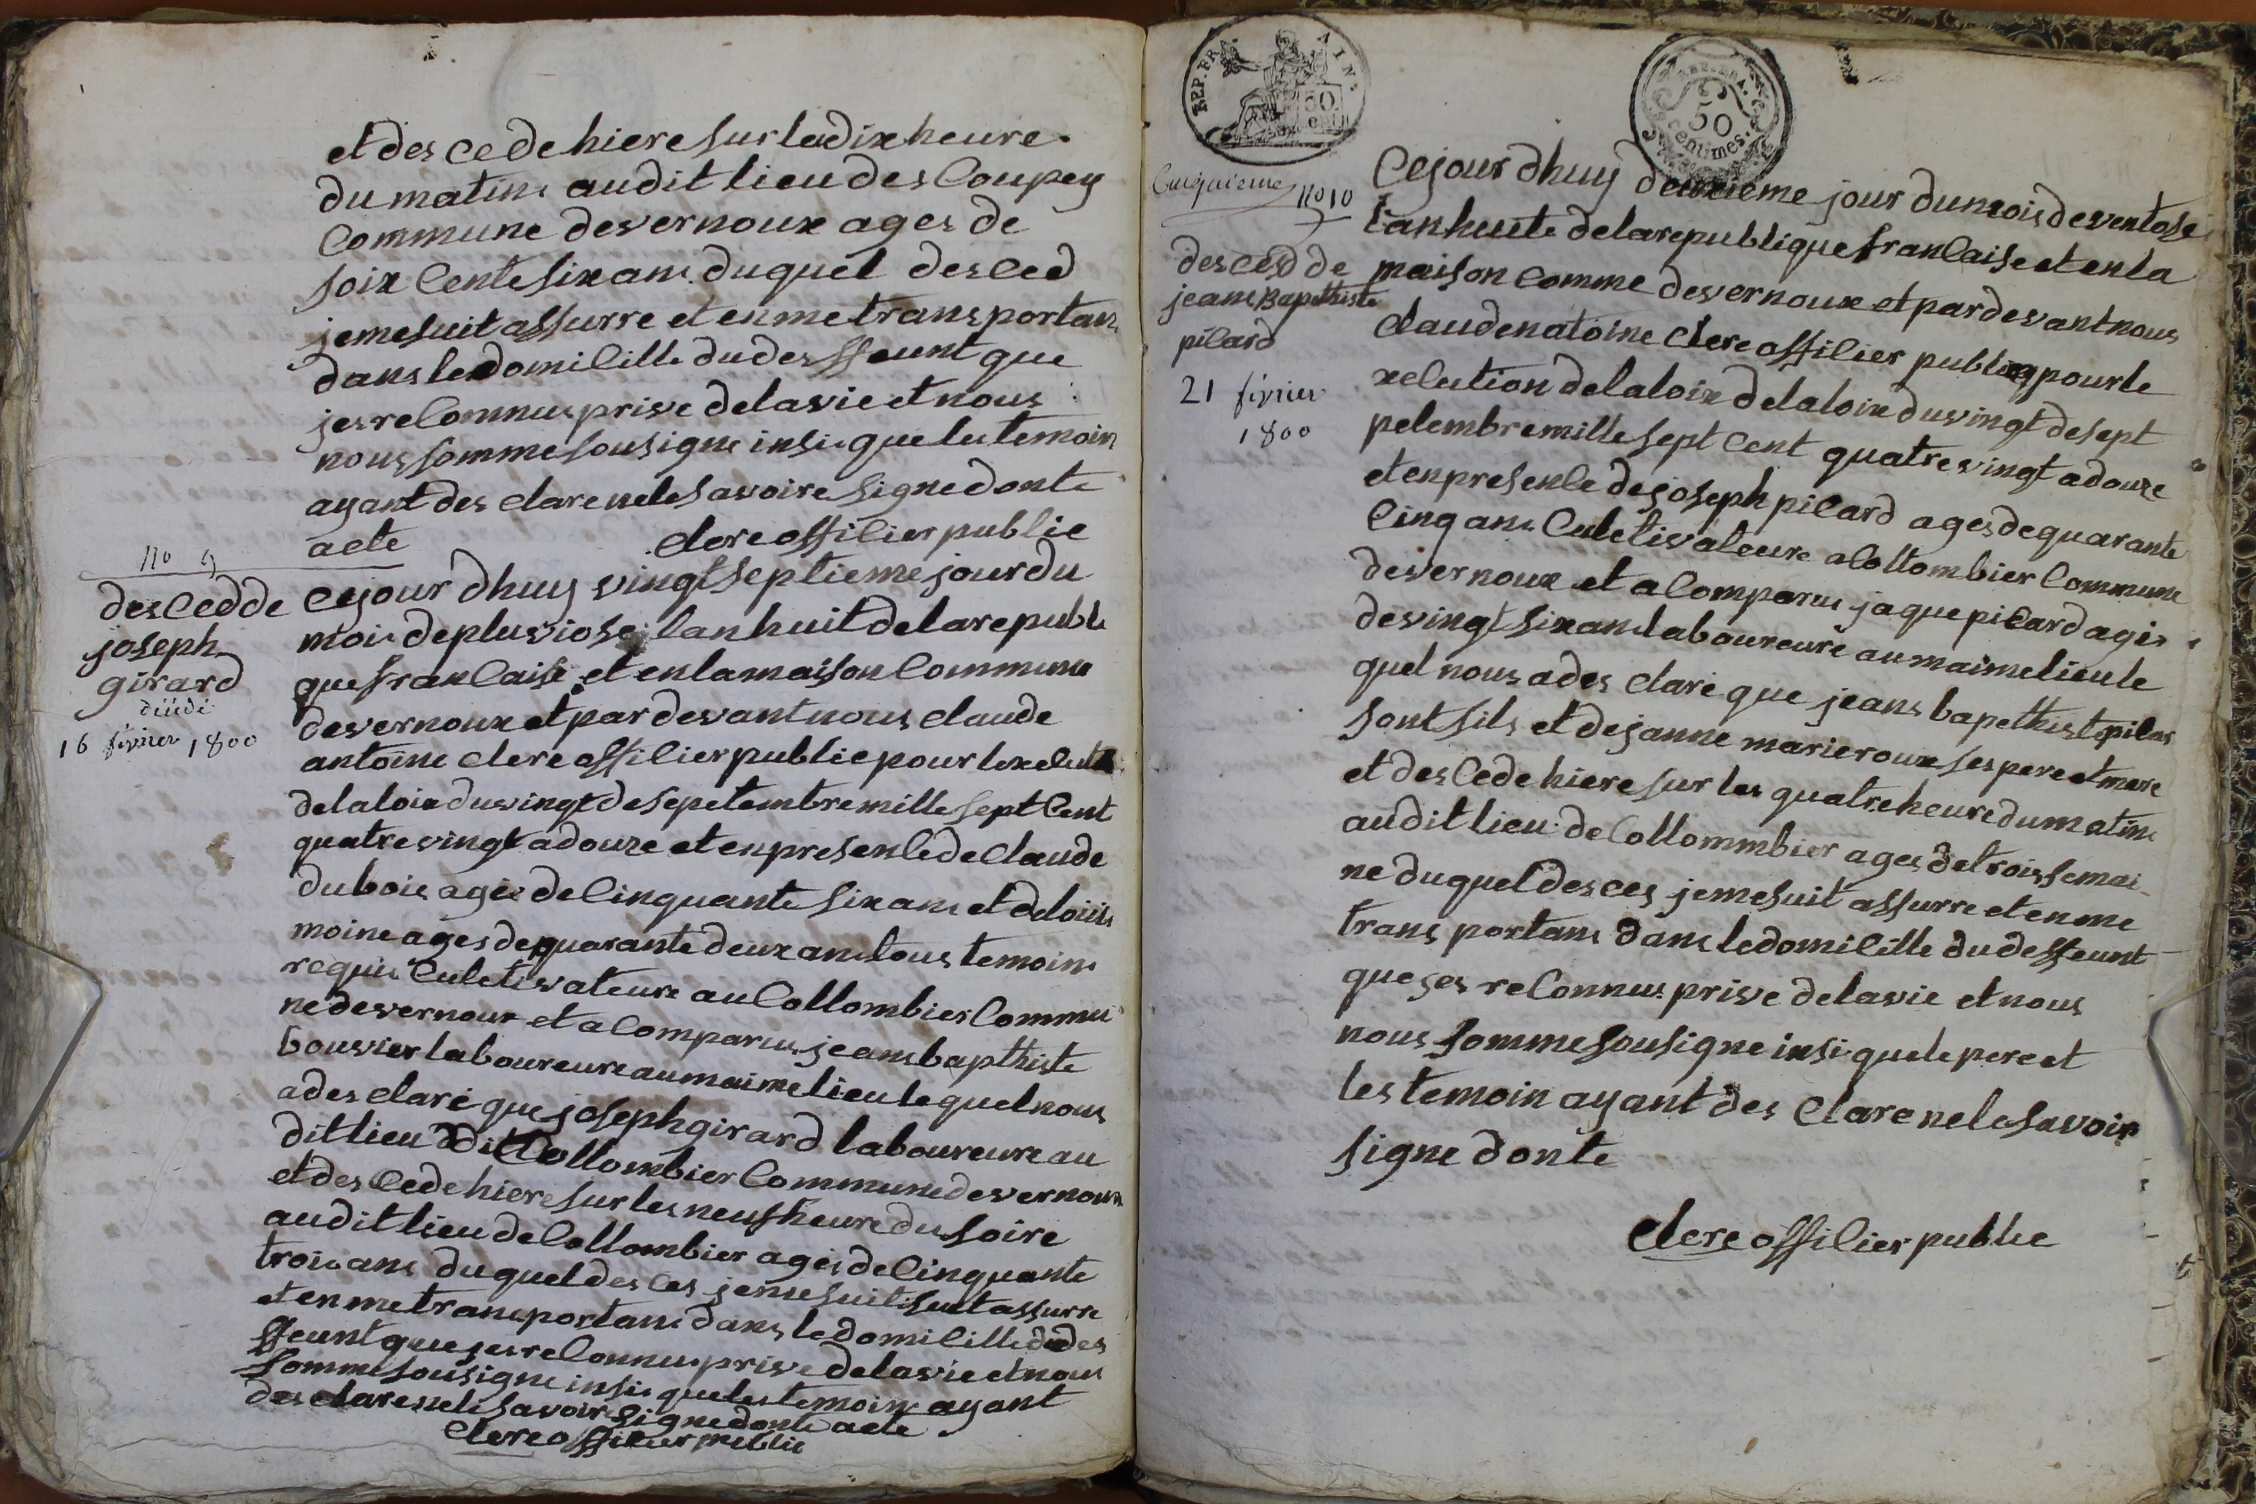 et des cede hiere sur la dix heure
du matins audit lieu des Coupey
Commune desvernoux ages de
soix Cente six ans duquel des Ced
je me suit assurre et en me transportan
dans le domicille du des ffeunt que
jes reConnus prive de la vie et nous
nous somme sousigne insi que les temoin
ayant des clare ne le savoire signe donte
acte clere officier public
no 9
des Ced de
joseph
girard
décédé
16 février 1800
Cejour dhuy vingt septieme jour du
mois de pluviose lan huit de la republi
que francaise et en la maison Commune
desvernoux et par devant nous claude
antoine clere officier public pour lexecuti
de la loix du vingt de sepetembre mille sept Cent
quatre vingt a douze et en presence de claude
dubois ages de Cinquante six ans et de louis
moine ages de quarante deux ans tous temoins
requis Culetivateure au Collombier Commu
ne desvernoux et a Comparus jeans bapthiste
bouvier laboureure au maime lieu le quel nous
a des claré que joseph girard laboureure au
dit lieu dit Collombier Commune desvernoux
et des Cede hiere sur les neuf heure du soire
audit lieu de Collombier ages de Cinquante
trois ans duquel des Ces je me suit suit assurre
et en me transportans dans le domicille du des
ffeunt que jes reConnus prive de la vie et nous
somme sousigne insi que les temoins ayant
des clare ne le savoir signe donte acte
clere officier public
REP. FRA
AIN
50
cent
50
centimes
Cinquieme
no 10
des Ced de
jeans Bapethiste
picard
21 février
1800
Cejour dhuy deuxieme jour du mois de ventose
lan huite de la republique francaise et en la
maison Comme desvernoux et par devant nous
claude natoine clere officier publicq pour le
xecution de la loix de la loix du vingt de sept
petembre mille sept Cent quatre vingt a douze
et en presence de joseph picard ages de quarante
Cinq ans Culetivateure a Collombier Commune
desvernoux et a Comparus jaque picard ages
de vingt six ans laboureure au maime lieu le
quel nous a des claré que jeans bapethiste picar
sont fils et de janne marie roux ses pere et mere
et des Cede hiere sur les quatre heure du matins
audit lieu de Collommbier ages de trois semai
ne duquel des ces je me suit assurre et en me
transportans dans le domicille du desffeunt
que jes reConnus prive de la vie et nous
nous somme sousigne insi que le pere et
les temoin ayant des Clare ne le savoir
signe donte
clere officier public